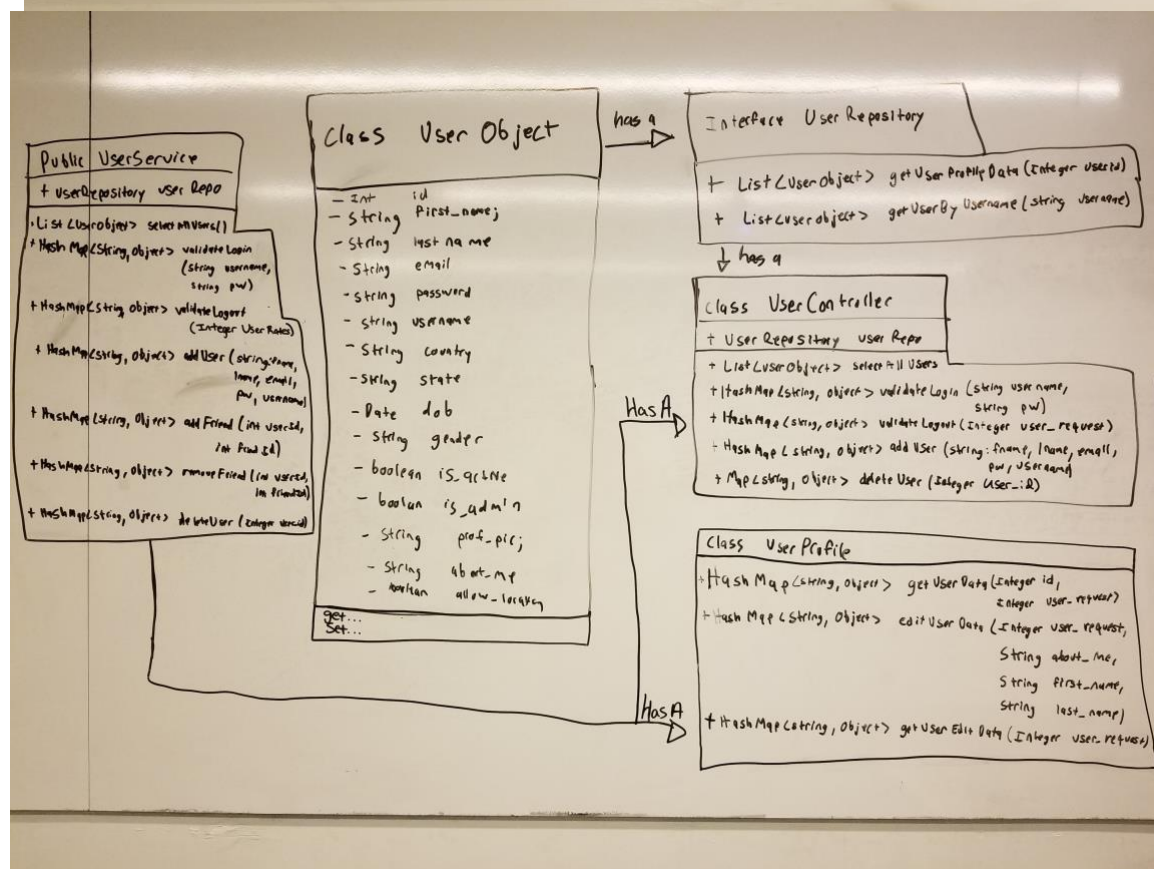 Public UserService
+ UserRepository user Repo
+ List<Userobject> selectAllUsers()
+ HashMap<String, object> validateLogin
(string username,
string pw)
+ HashMap<String, object> validateLogout
(Integer User
+ HashMap<String, Object> addUser (string:fname,
lname, email,
pw, username)
+ HashMap<String, Object> addFriend (int userid,
int
+ HashMap<String, Object> removeFriend (int userid,
int friendid)
+ HashMap<String, Object> deleteUser (Integer userid)
Class User Object
- Int id
- String first_name;
- String last name
- String email
- String password
- String username
- String country
- String state
- Date dob
- String gender
- boolean is_active
- boolean is_admin
- String prof_pic;
- String about_me
- boolean
get...
Set...
has a
Interface UserRepository
+ List<UserObject> getUserProfileData (Integer userId)
+ List<userobject> getUserByUsername (string username)
has a
Class UserController
+ UserRepository user Repo
+ List<userObject> selectAll Users
+ HashMap<string, object> validateLogin (string username,
string pw)
+ HashMap<string, object> validateLogout (Integer user_request)
+ HashMap<string, object> addUser (string: fname, lname, email,
pw, username)
+ Map<string, Object> deleteUser (Integer user_id)
HasA
Class UserProfile
+ HashMap<string, Object> getUserData (Integer id,
Integer user_request)
+ HashMap<String, Object> editUserData (Integer user_request,
String about_me,
String first_name,
String last_name)
+ HashMap<string, Object> getUserEditData (Integer user_request)
HasA